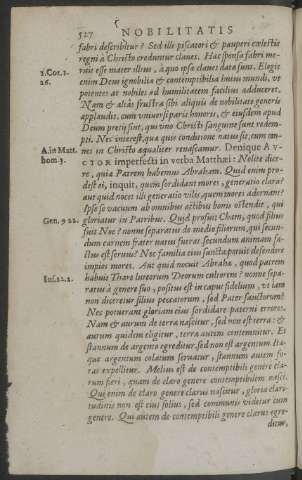 527 NOBILITATIS
fabri describitur? Sed illi piscatori & pauperi cælestis
regni à Christo creduntur claues. Hæc sponsa fabri me-
ruit esse mater illius, à quo ipsa claues data sunt. Elegit
1.Cor.1.
26.
enim Deus ignobilia & contemptibilia huius mundi, vt
potentes ac nobiles ad humilitatem facilius adduceret.
Nam & aliàs frustra sibi aliquis de nobilitate generis
applaudit, cum vniuersi paris honoris, & eiusdem apud
Deum pretij sint, qui vno Christi sanguine sunt redem-
pti. Nec interest, qua quis conditione natus sit, cum om-
A.in Matt.
hom.3.
nes in Christo æqualiter renascamur. Denique AV-
CTOR imperfecti in verba Matthæi: Nolite dice-
re, quia Patrem habemus Abraham. Quid enim pro-
dest ei, inquit, quem sordidant mores, generatio clara?
aut quid nocet illi generatio vilis, quem mores adornant?
Ipse se vacuum ab omnibus actibus bonis ostendit, qui
Gen.9.22.
gloriatur in Patribus. Quid profuit Cham, quod filius
fuit Noe? nonne separatus de medio filiorum, qui secun-
dum carnem frater natus fuerat secundum animam fa-
ctus est seruus? Nec familia eius sancta potuit defendere
impios mores. Aut quid nocuit Abrahæ, quod patrem
Ios.24.2.
habuit Thare luteorum Deorum cultorem? nonne sepa-
ratus à genere suo, positus est in caput fidelium, vt iam
non diceretur filius peccatorum, sed Pater sanctorum?
Nec poterant gloriam eius sordidare paterni errores.
Nam & aurum de terra nascitur, sed non est terra: &
aurum quidem eligitur, terra autem contemnitur. Et
stannum de argento egreditur sed non est argentum. Ita-
que argentum colatum seruatur, stannum autem fo-
ras expellitur. Melius est de contemptibili genere cla-
rum fieri, quam de claro genere contemptibilem nasci.
Qui enim de claro genere clarus nascitur, gloria clari-
tudinis non est eius solius, sed communis videtur cum
genere. Qui autem de contemptibili genere clarus egre-
ditur,